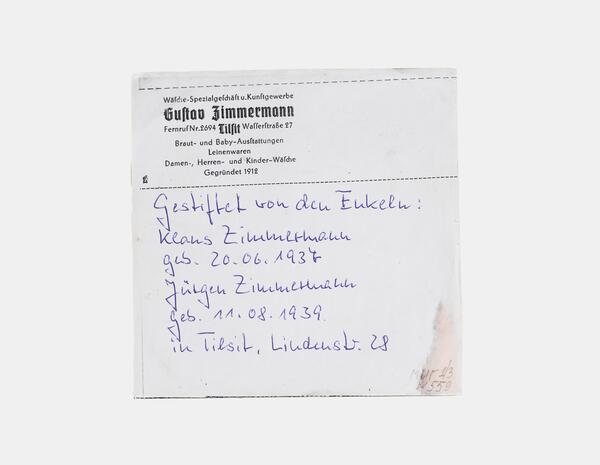 Wäsche-Spezialgeschäft u. Kunstgewerbe
Gustav Zimmermann
Fernruf Nr. 2694 Tilsit Wasserstraße 27
Braut- und Baby-Ausstattungen
Leinenwaren
Damen-, Herren- und Kinder-Wäsche
Gegründet 1912
Gestiftet von den Enkeln:
Klaus Zimmermann
geb. 20.06.1937
Jürgen Zimmermann
geb. 11.08.1939
in Tilsit, Lindenstr. 28